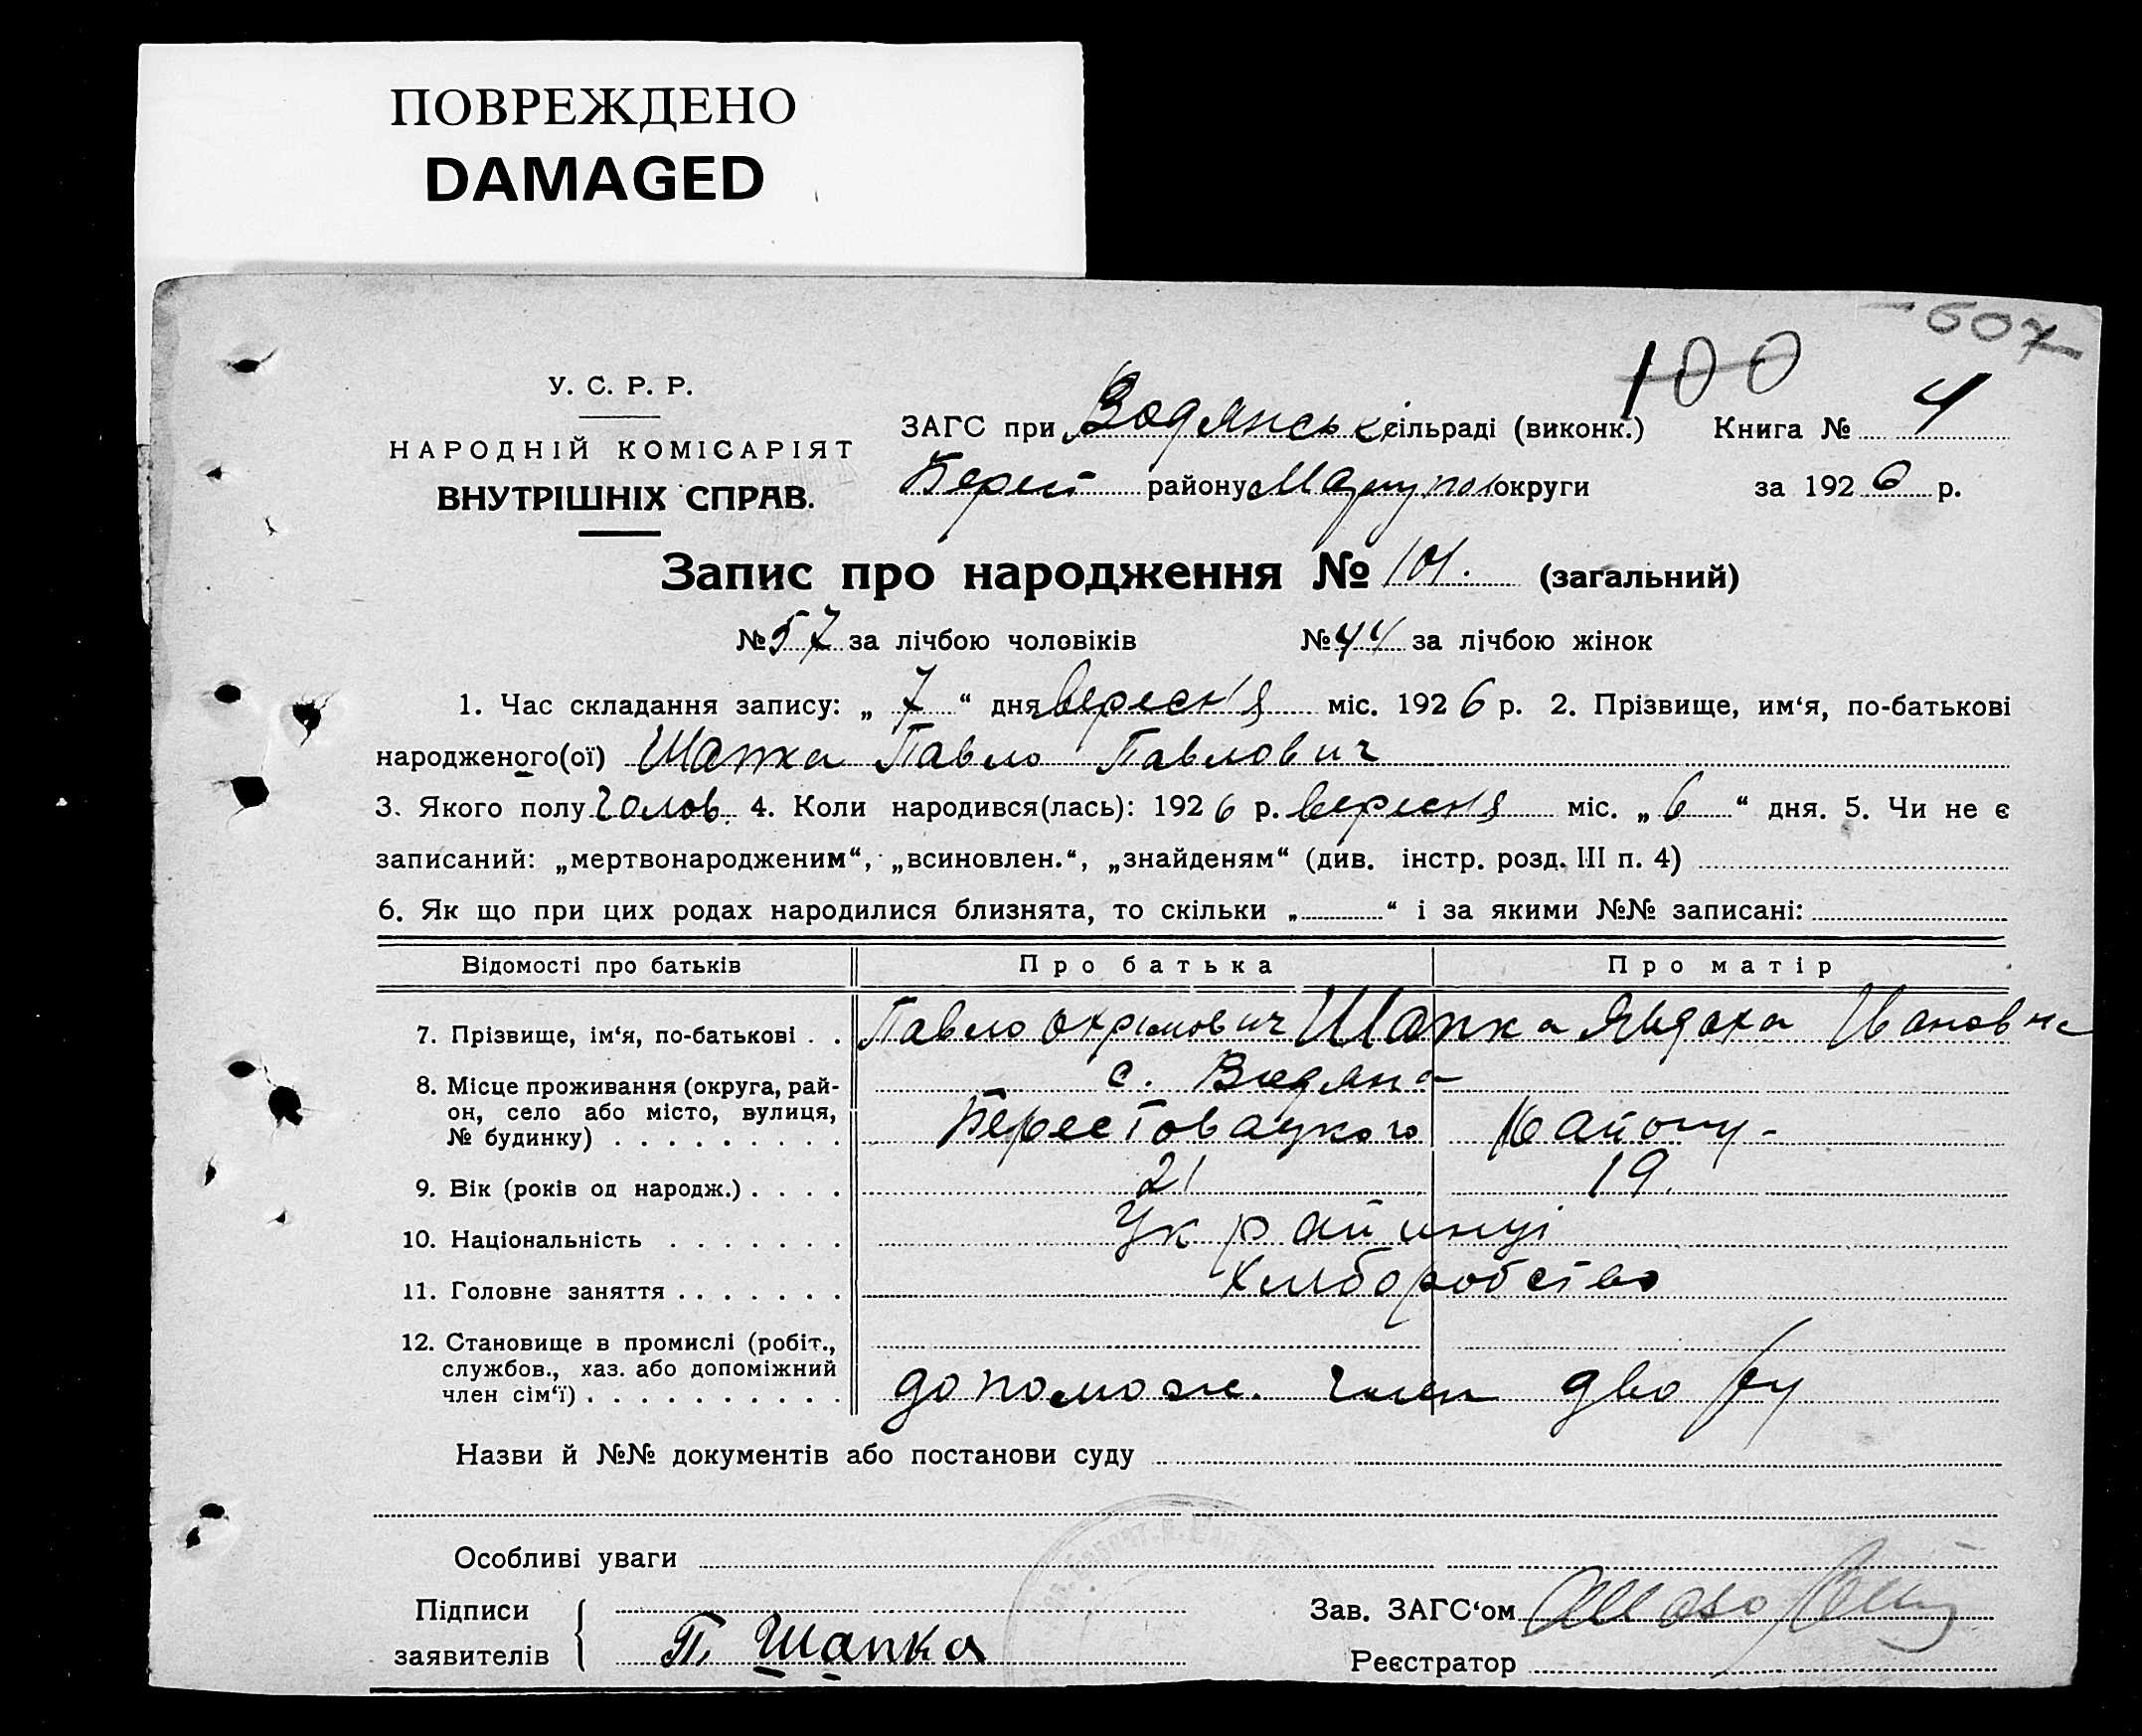 ПОВРЕЖДЕНО
DAMAGED
607
100
У. С. Р. Р.
НАРОДНІЙ КОМІСАРІЯТ
ВНУТРІШНІХ СПРАВ.
ЗАГС при Водянській сільраді (виконк.) Книга № 4
Берест району Маріупол округи за 1926 р.
Запис про народження № 101. (загальний)
№ 57 за лічбою чоловіків № 44 за лічбою жінок
1. Час складання запису: „ 7 “ дня вересня міс. 1926 р. 2. Прізвище, им‘я, по-батькові
народженого(ої) Шапка Павло Павлович
3. Якого полу чолов. 4. Коли народився(лась): 1926 р. вересня міс. „ 6 “ дня. 5. Чи не є
записаний: „мертвонародженим“, „всиновлен.“, „знайденям“ (див. інстр. розд. III п. 4)
6. Як що при цих родах народилися близнята, то скільки „ “ і за якими №№ записані:
Відомості про батьків Про батька Про матір
7. Прізвище, ім‘я, по-батькові . . Павло Охрімович Шапка Явдоха Івановна
8. Місце проживання (округа, рай- с. Водяна
он, село або місто, вулиця,
№ будинку) . . . . . . . . . Берестовацкого Району -
9. Вік (років од народж.) . . . . 21 19.
10. Національність . . . . . . . Украйинці
11. Головне заняття . . . . . . . Хліборобство
12. Становище в промислі (робіт.,
службов., хаз. або допоміжний
член сім‘ї) . . . . . . . . . . допомож. член двору
Назви й №№ документів або постанови суду
Особливі уваги
Підписи Зав. ЗАГС‘ом
заявителів П. Шапка
Реєстратор